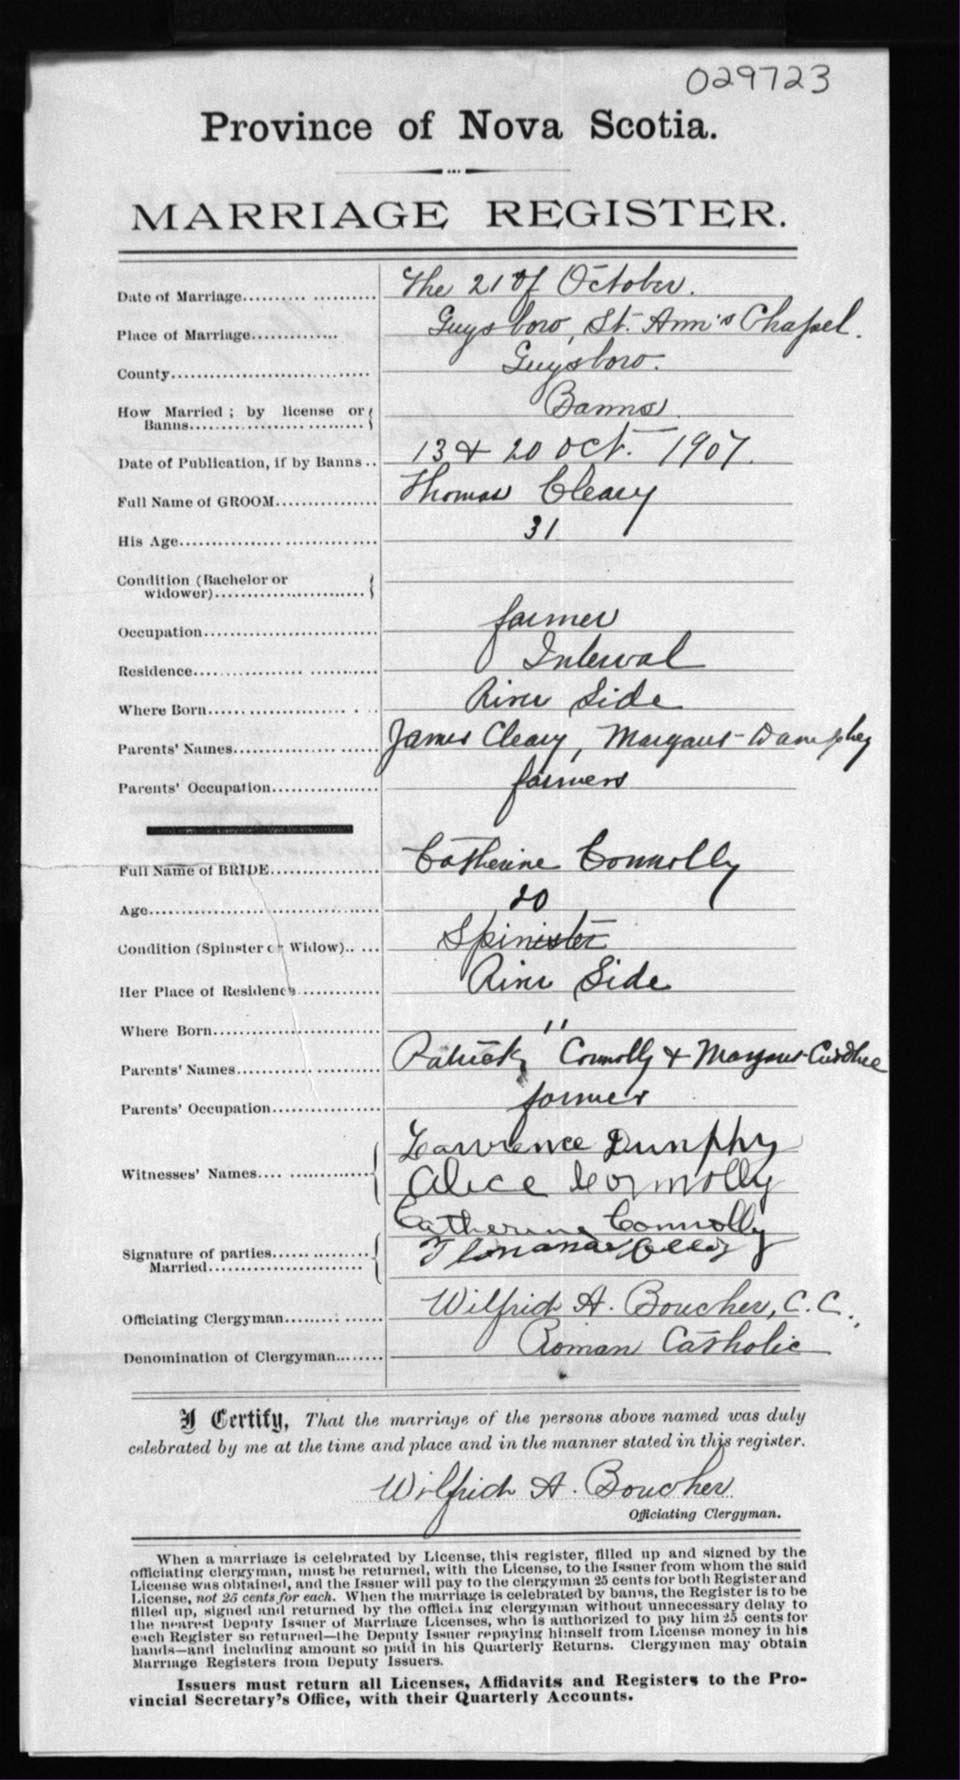 029723
Province of Nova Scotia.
MARRIAGE REGISTER.
Date of Marriage.................... The 21 of October.
Place of Marriage............. Guysboro, St. Ann's Chapel.
County............................. Guysboro.
How Married ; by license or
Banns......................... Banns
Date of Publication, if by Banns.. 13 & 20 Oct. 1907.
Full Name of GROOM............... Thomas Cleary
His Age............................. 31
Condition (Bachelor or
widower).........................
Occupation......................... farmer
Residence.......................... Interval
Where Born......................... River Side
Parents' Names..................... James Cleary, Margaret Dumphey
Parents' Occupation................ farmers
Full Name of BRIDE................ Catherine Connolly
Age................................. 20
Condition (Spinster or Widow)..... Spinister
Her Place of Residence............ River Side
Where Born........................ "
Parents' Names..................... Patrick Connolly & Margaret
Parents' Occupation................ farmer
Lawrence Dunphy
Witnesses' Names.................. Alice Connolly
Catherine Connolly
Signature of parties............... Thomas
Married.......................
Officiating Clergyman............. Wilfrid A. Boucher, C.C.,
Denomination of Clergyman........ Roman Catholic
I Certify, That the marriage of the persons above named was duly
celebrated by me at the time and place and in the manner stated in this register.
Wilfrid A. Boucher
Officiating Clergyman.
When a marriage is celebrated by License, this register, filled up and signed by the
officiating clergyman, must be returned, with the License, to the Issuer from whom the said
License was obtained, and the Issuer will pay to the clergyman 25 cents for both Register and
License, not 25 cents for each. When the marriage is celebrated by banns, the Register is to be
filled up, signed and returned by the officia ing clergyman without unnecessary delay to
the nearest Deputy Issuer of Marriage Licenses, who is authorized to pay him 25 cents for
each Register so returned—the Deputy Issuer repaying himself from License money in his
hands—and including amount so paid in his Quarterly Returns. Clergymen may obtain
Marriage Registers from Deputy Issuers.
Issuers must return all Licenses, Affidavits and Registers to the Pro-
vincial Secretary's Office, with their Quarterly Accounts.